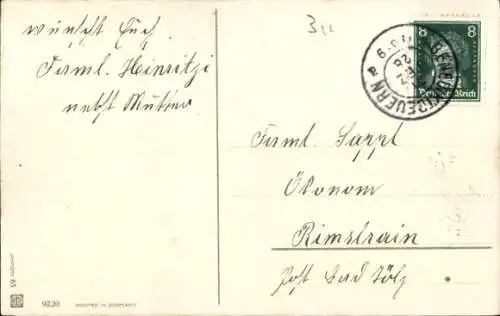 wünscht Euch
Faml. Heinritzi
nebst Mutter
3
8 8
Deutsches Reich
BENEDIKTBEUERN
Faml. Sappl
Ökonom
Rimslrain
Post Bad Tölz
9220